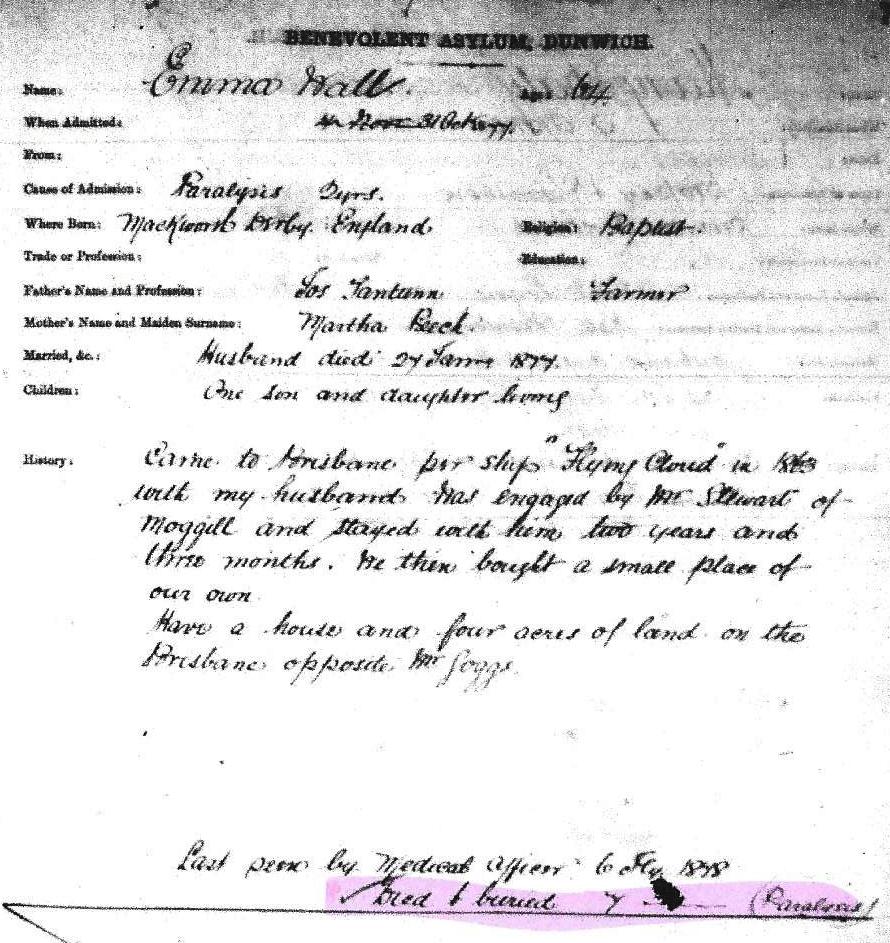 BENEVOLENT ASYLUM, DUNWICH.
Name: Emma Wall. Age: 64
When Admitted: 31 Oct 1877.
From:
Cause of Admission: Paralysis 2yrs.
Where Born: Mackworth Derby England Religion: Baptist
Trade or Profession: Education:
Father's Name and Profession: Jos Farmer
Mother's Name and Maiden Surname: Martha Beeck
Married, &c.: Husband died 27 1877.
Children: One son and daughter living
History: Came to Brisbane per ship "Flying Cloud" in 1863
with my husband Was engaged by Mr Stewart of
Moggill and stayed with him two years and
three months. We then bought a small place of
our own
Have a house and four acres of land on the
Brisbane opposite Mr Goggs.
Last seen by Medical Officer 6 1878
Died & buried 7 (Paralysis)